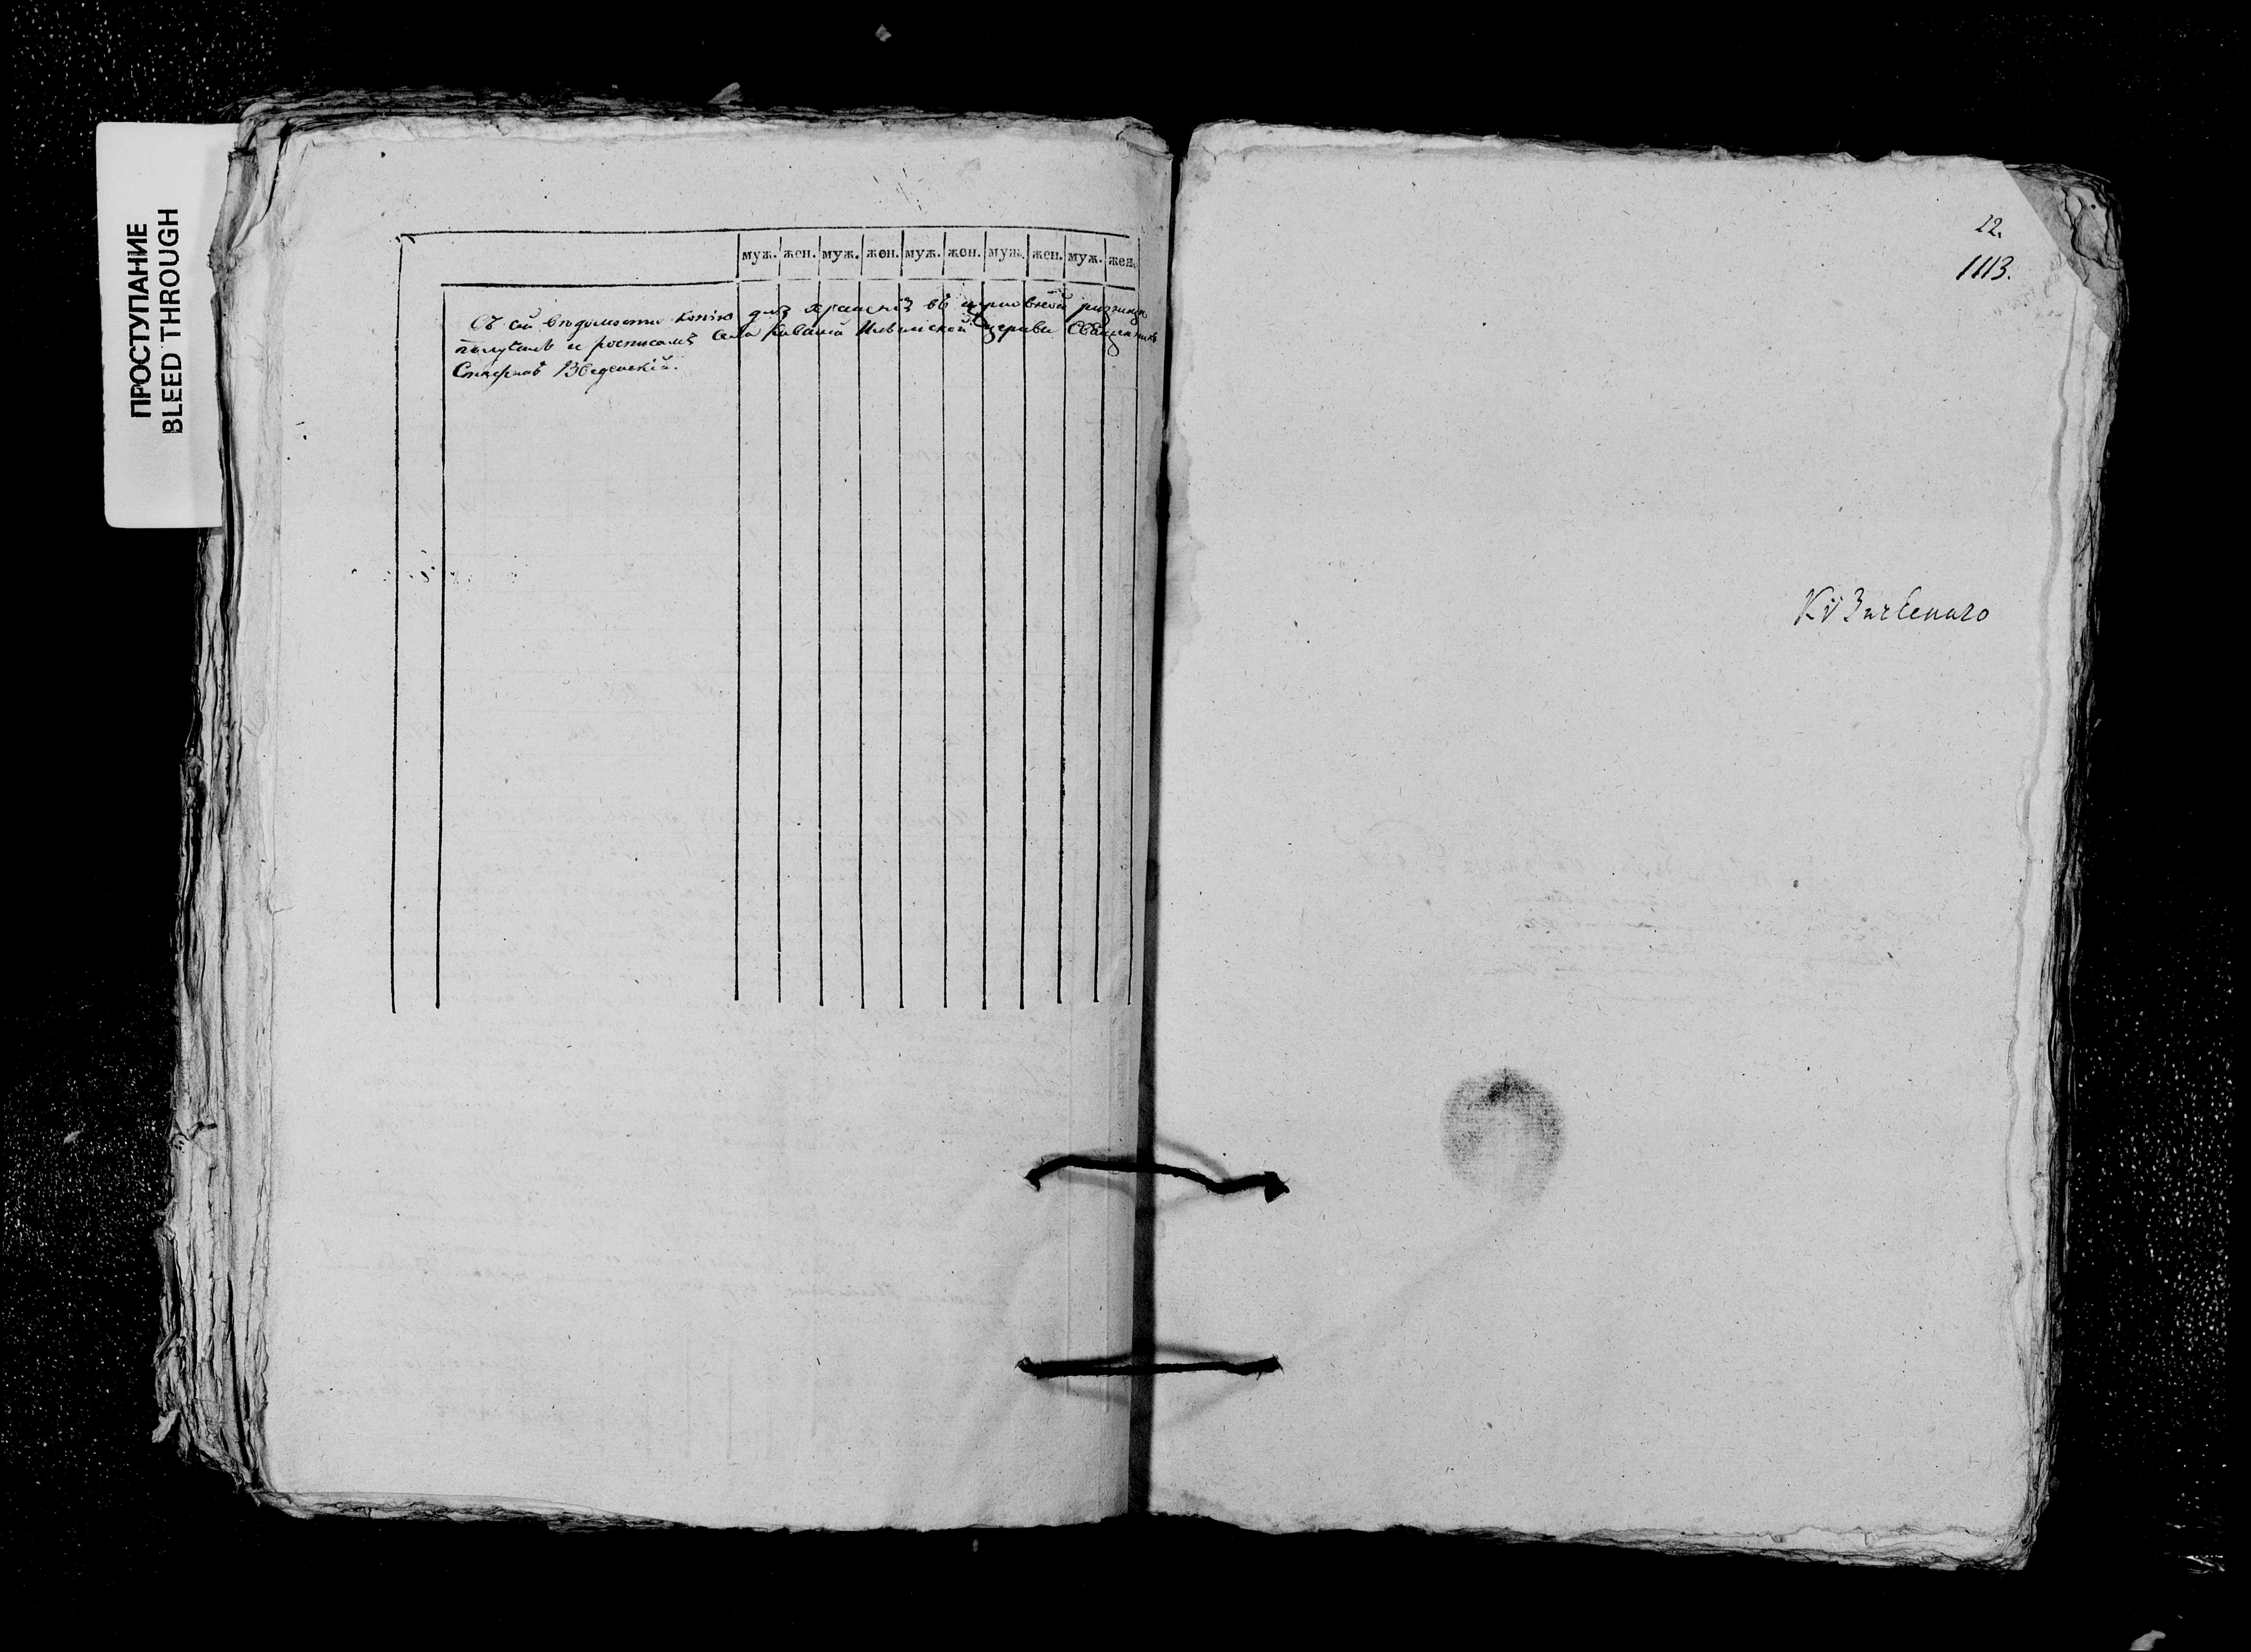 ПРОСТУПАНИЕ
BLEED THROUGH
муж. жен. муж. жен. муж. жен. муж. жен. муж. жен.
Съ сей вѣдомости копію для храненія въ церковной ризницѣ
получилъ и росписался Села Ильинской церкви Священникъ
Стефанъ Введенскій.
22.
1113.